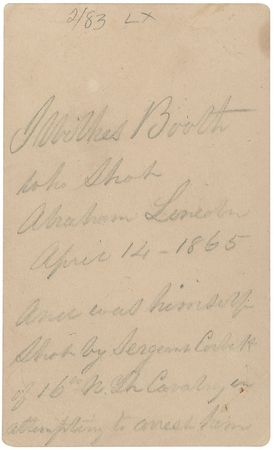 2/83 LX
J Wilkes Booth
who Shot
Abraham Lincoln
April 14 - 1865
And was himself
Shot by Sergent Corbett
of 16th N.Y. Cavalry in
attempting to arrest him